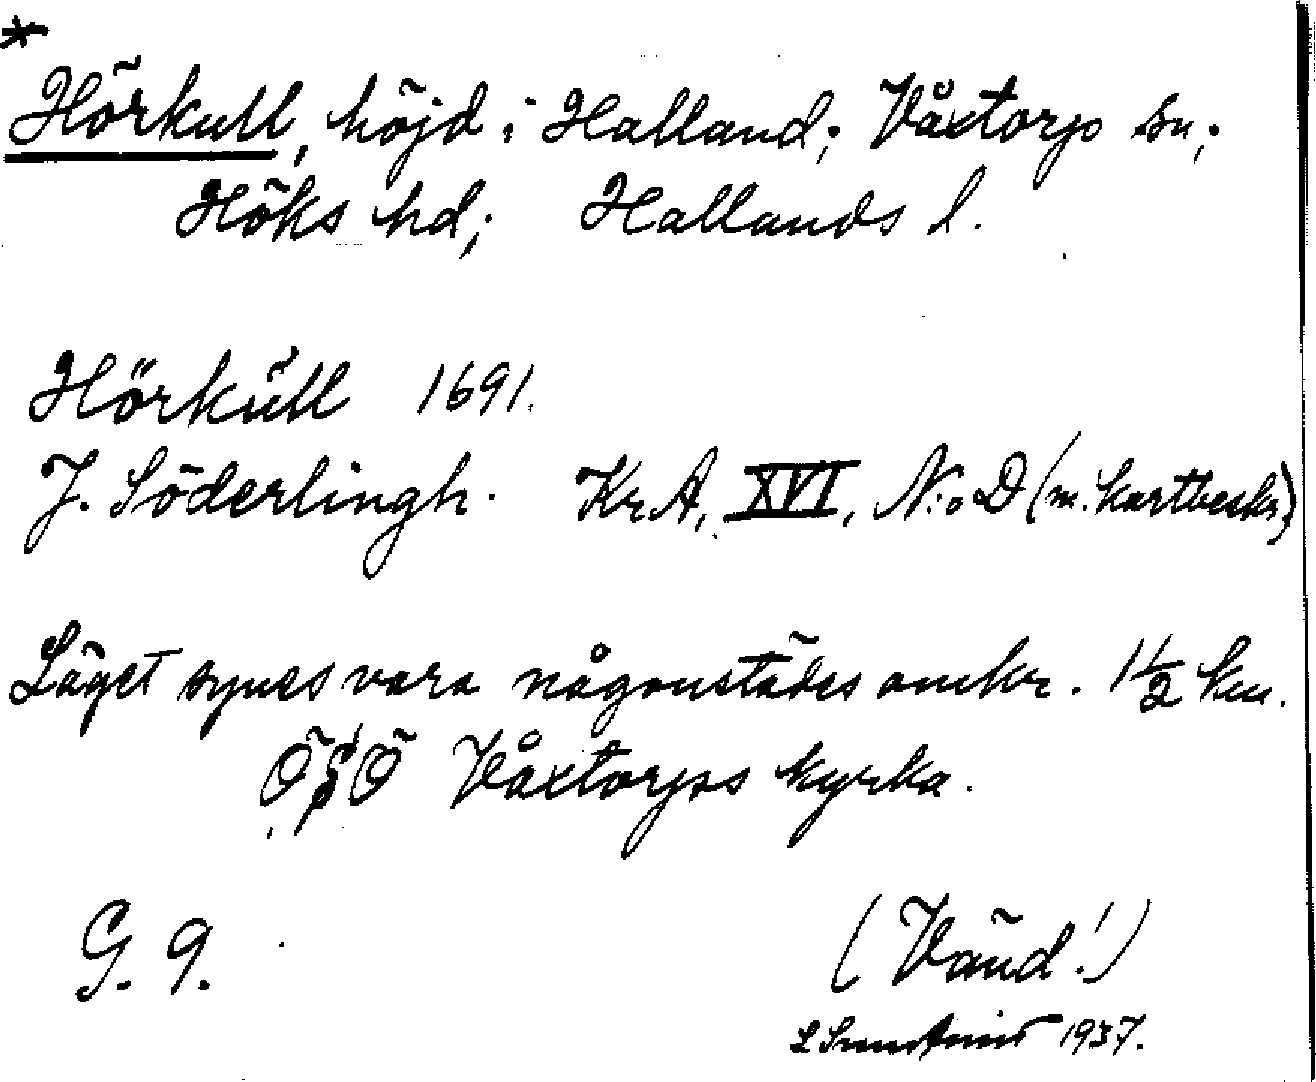 *
Hörkull, höjd i Halland; Våxtorp sn;
Höks hd; Hallands l.
Hörkŭll 1691.
J. Söderlingh. KrA, XVI, N:o D (m. kartbeskr.)
Läget synes vara någonstädes omkr. 1½ km.
ÖSÖ Våxtorps kyrka.
G. 9.
(Vänd!)
1937.